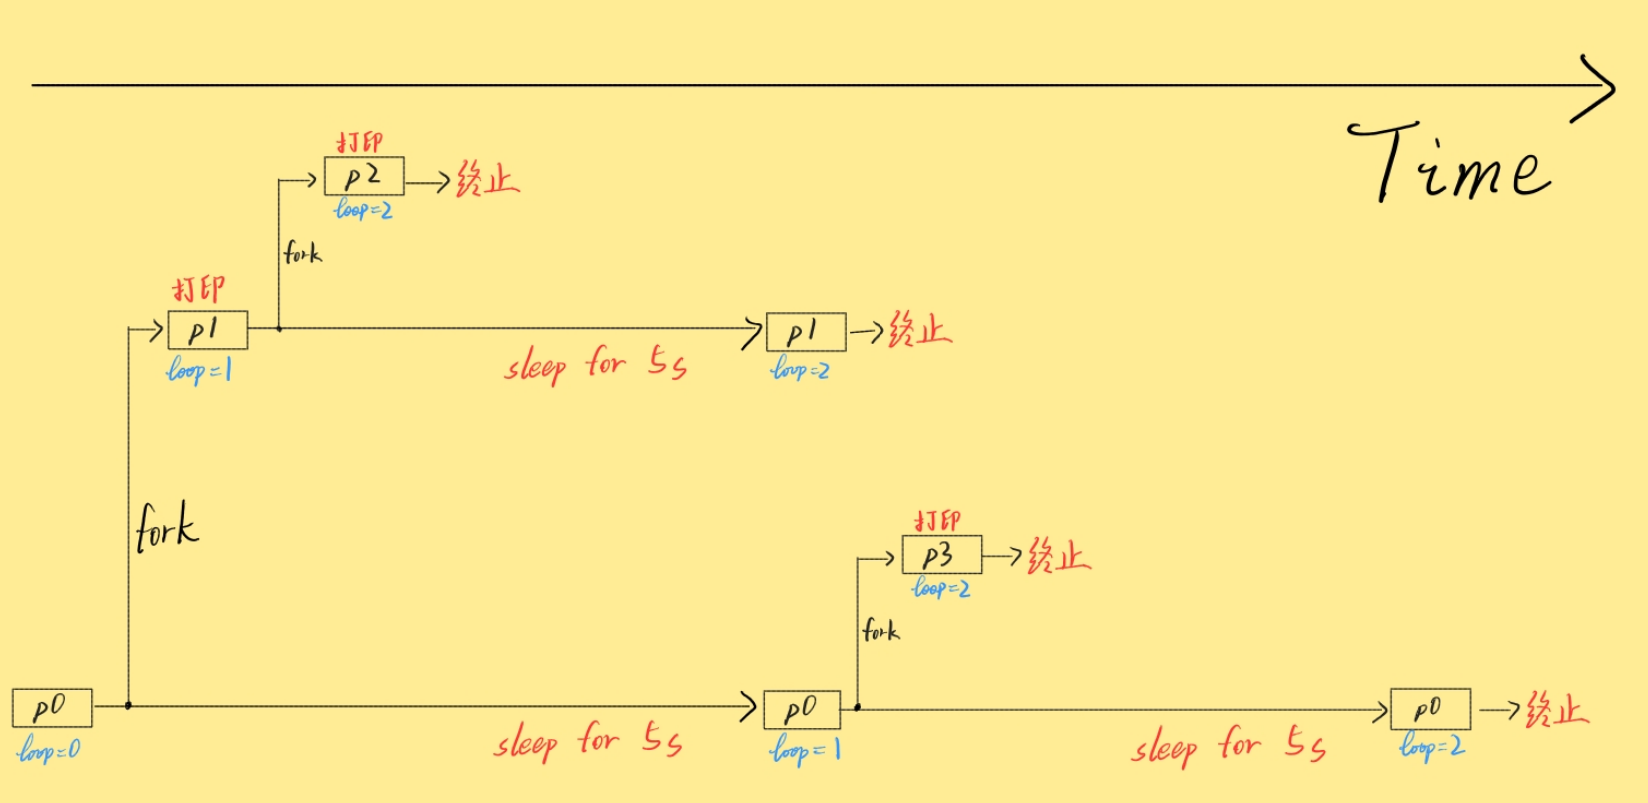 Time
打印
p2
终止
loop=2
fork
打印
p1
loop=1
sleep for 5s
p1
终止
loop=2
fork
打印
p3
终止
loop=2
fork
p0
loop=0
sleep for 5s
p0
loop=1
sleep for 5s
p0
终止
loop=2